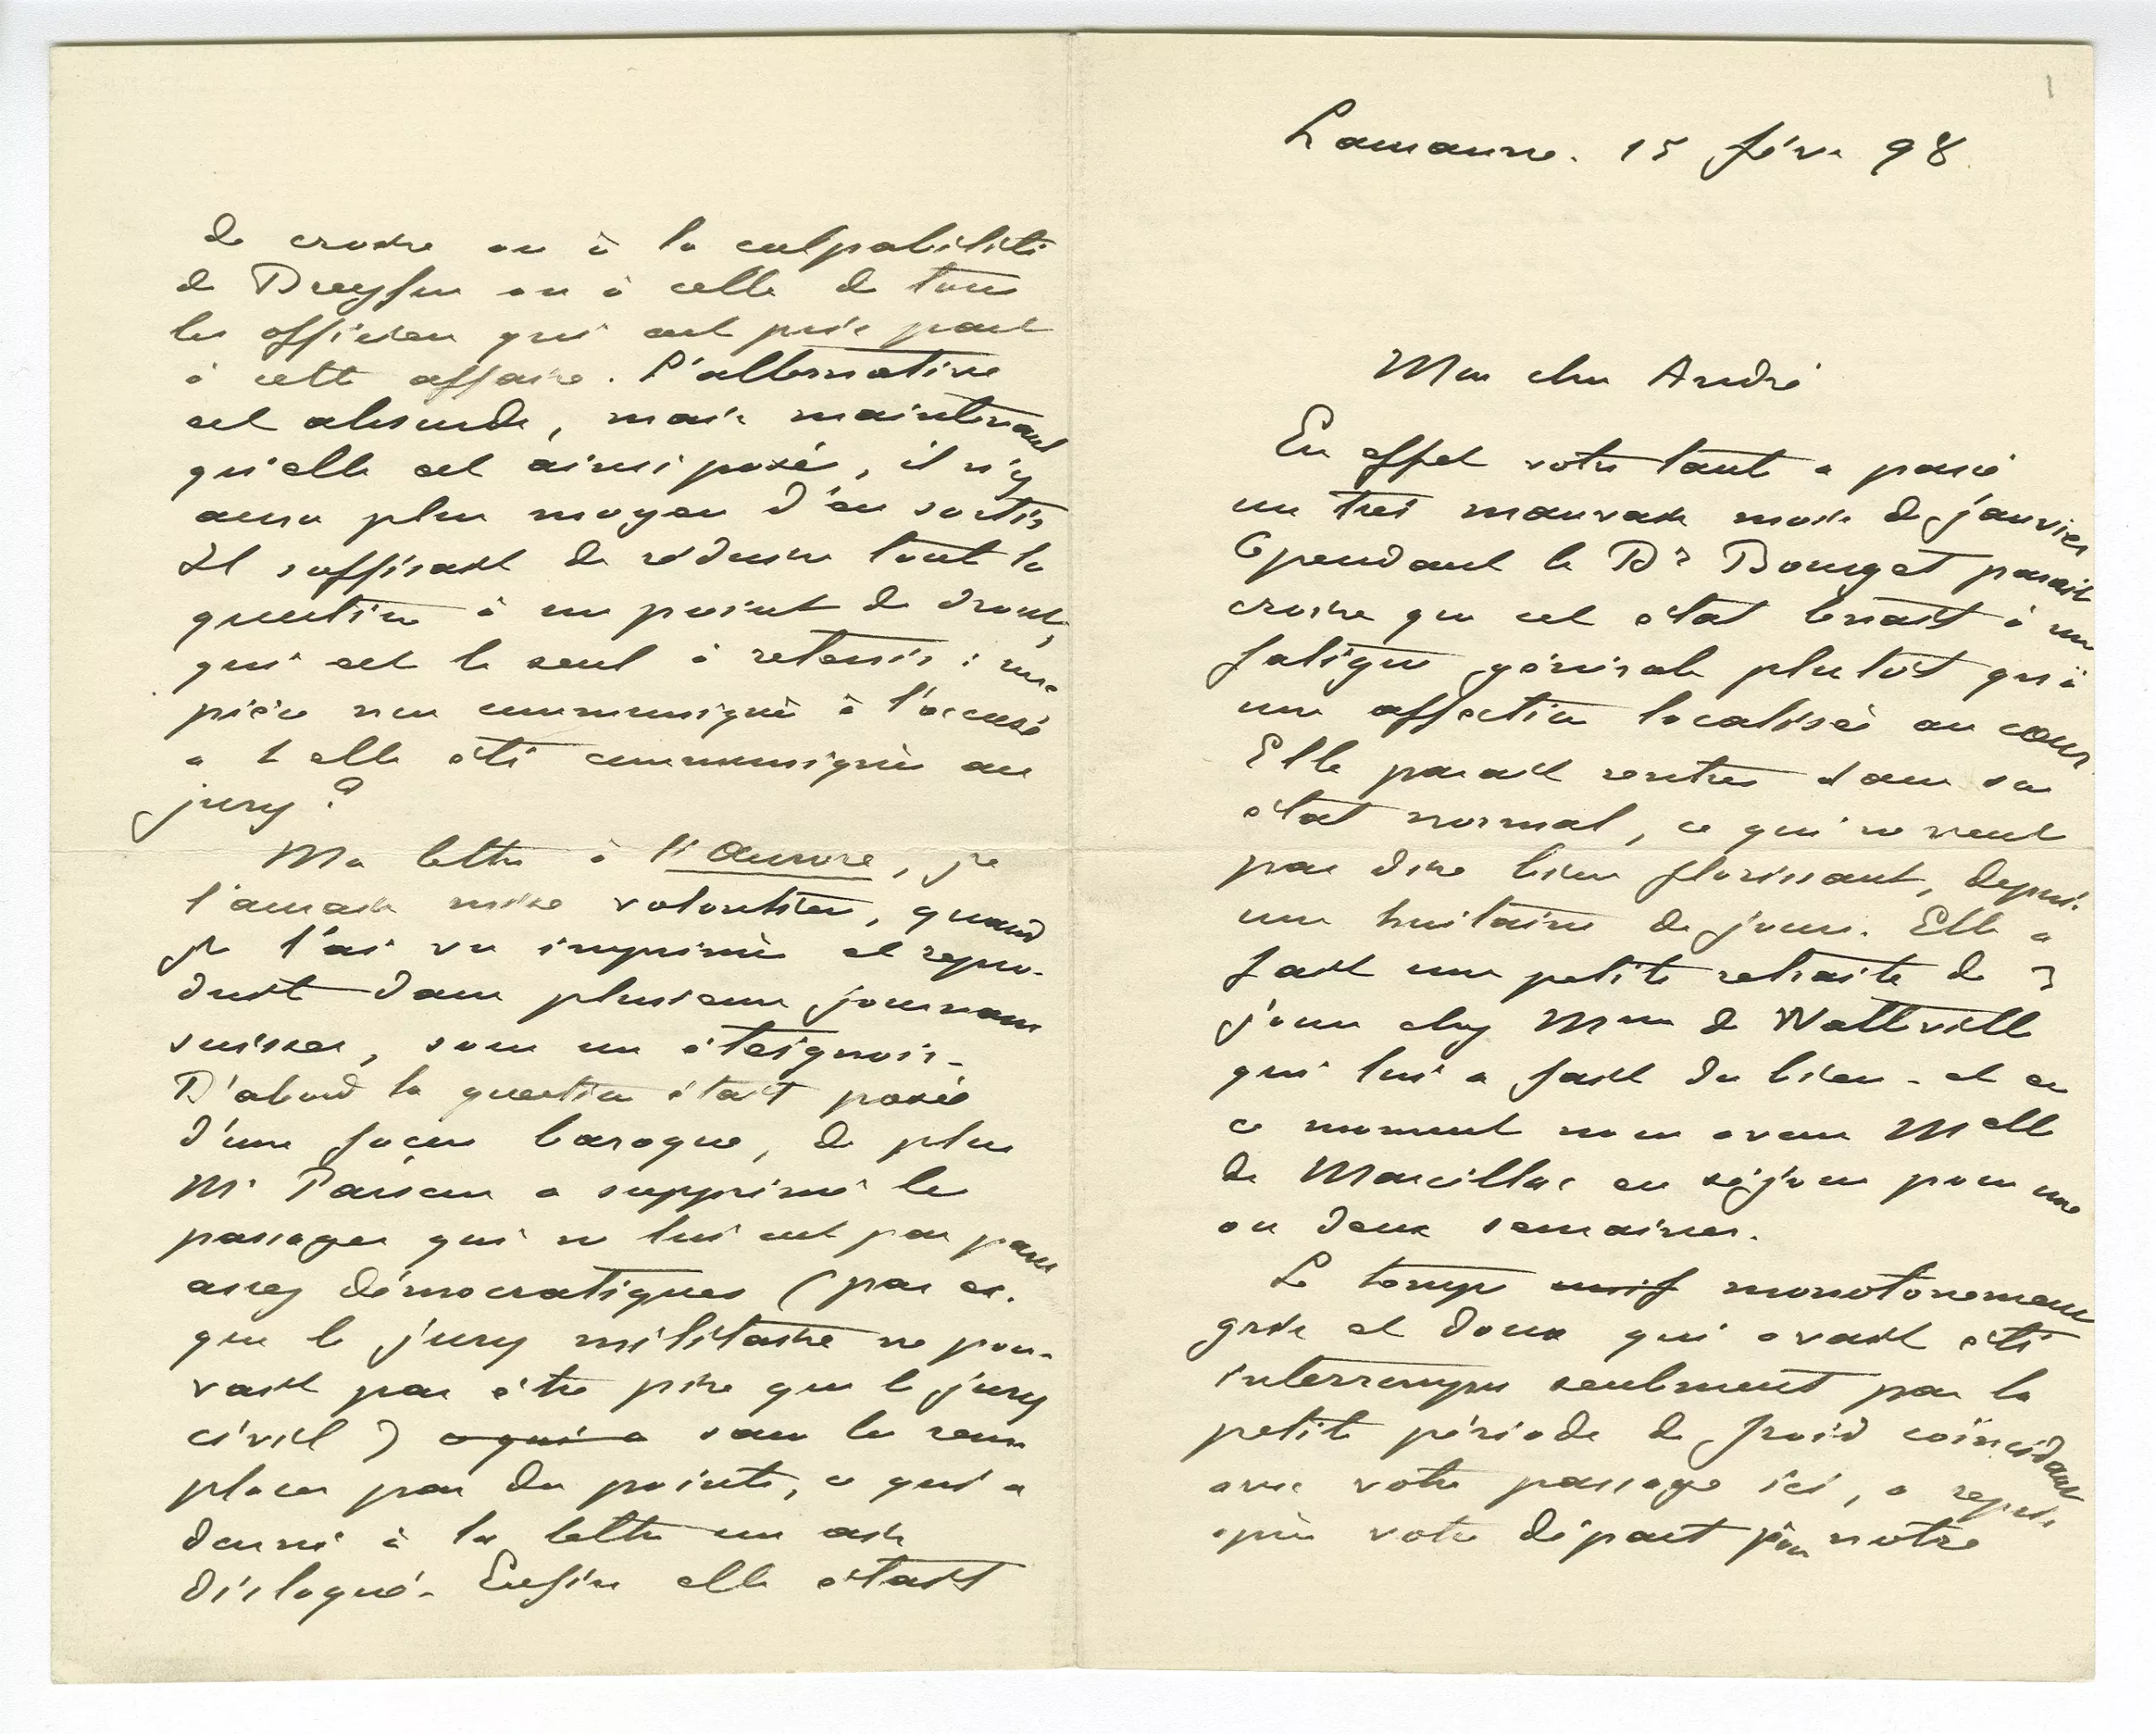 1
Lausanne. 15 févr 98.
Mon cher André
En effet votre tante a passé
un très mauvais mois de janvier
Cependant le Dr Bourget parait
croire que cet état tenait à une
fatigue générale plutôt qu'à
une affection localisée au cœur.
Elle parait rentrée dans son
état normal, ce qui ne veut
pas dire bien florissant, depuis
une huitaine de jours. Elle a
fait une petite retraite de 3
jours chez Mme de Watteville
qui lui a fait du bien - et en
ce moment nous avons Melle
de Marcillac en séjour pour une
ou deux semaines.
Le temps monotonement
gris et doux qui avait été
interrompu seulement par la
petite période de froid coïncidant
avec votre passage ici, a repris
après votre départ pour notre
de croire ou à la culpabilité
de Dreyfus ou à celle de tous
les officiers qui ont pris part
à cette affaire. L'alternative
est absurde, mais maintenant
qu'elle est ainsi posée, il n'y
aura plus moyen d'en sortir
Il suffisait de réduire toute la
question à un point de droit,
qui est le seul à retenir : une
pièce non communiquée à l'accusé
a t elle été communiquée au
jury ?
Ma lettre à l'Aurore, je
l'aurais mise volontiers, quand
je l'ai vu imprimée et repro-
duit dans plusieurs journaux
suisses, sous un éteignoir -
D'abord la question était posée
d'une façon baroque, de plus
Mr Parsons a supprimé les
passages qui ne lui ont pas paru
assez démocratiques (par ex.
que le jury militaire ne pou-
vait pas être pire que le jury
civil) ce qui a sans les rem
placer par des points, ce qui a
donné à la lettre un air
disloqué - Enfin elle était